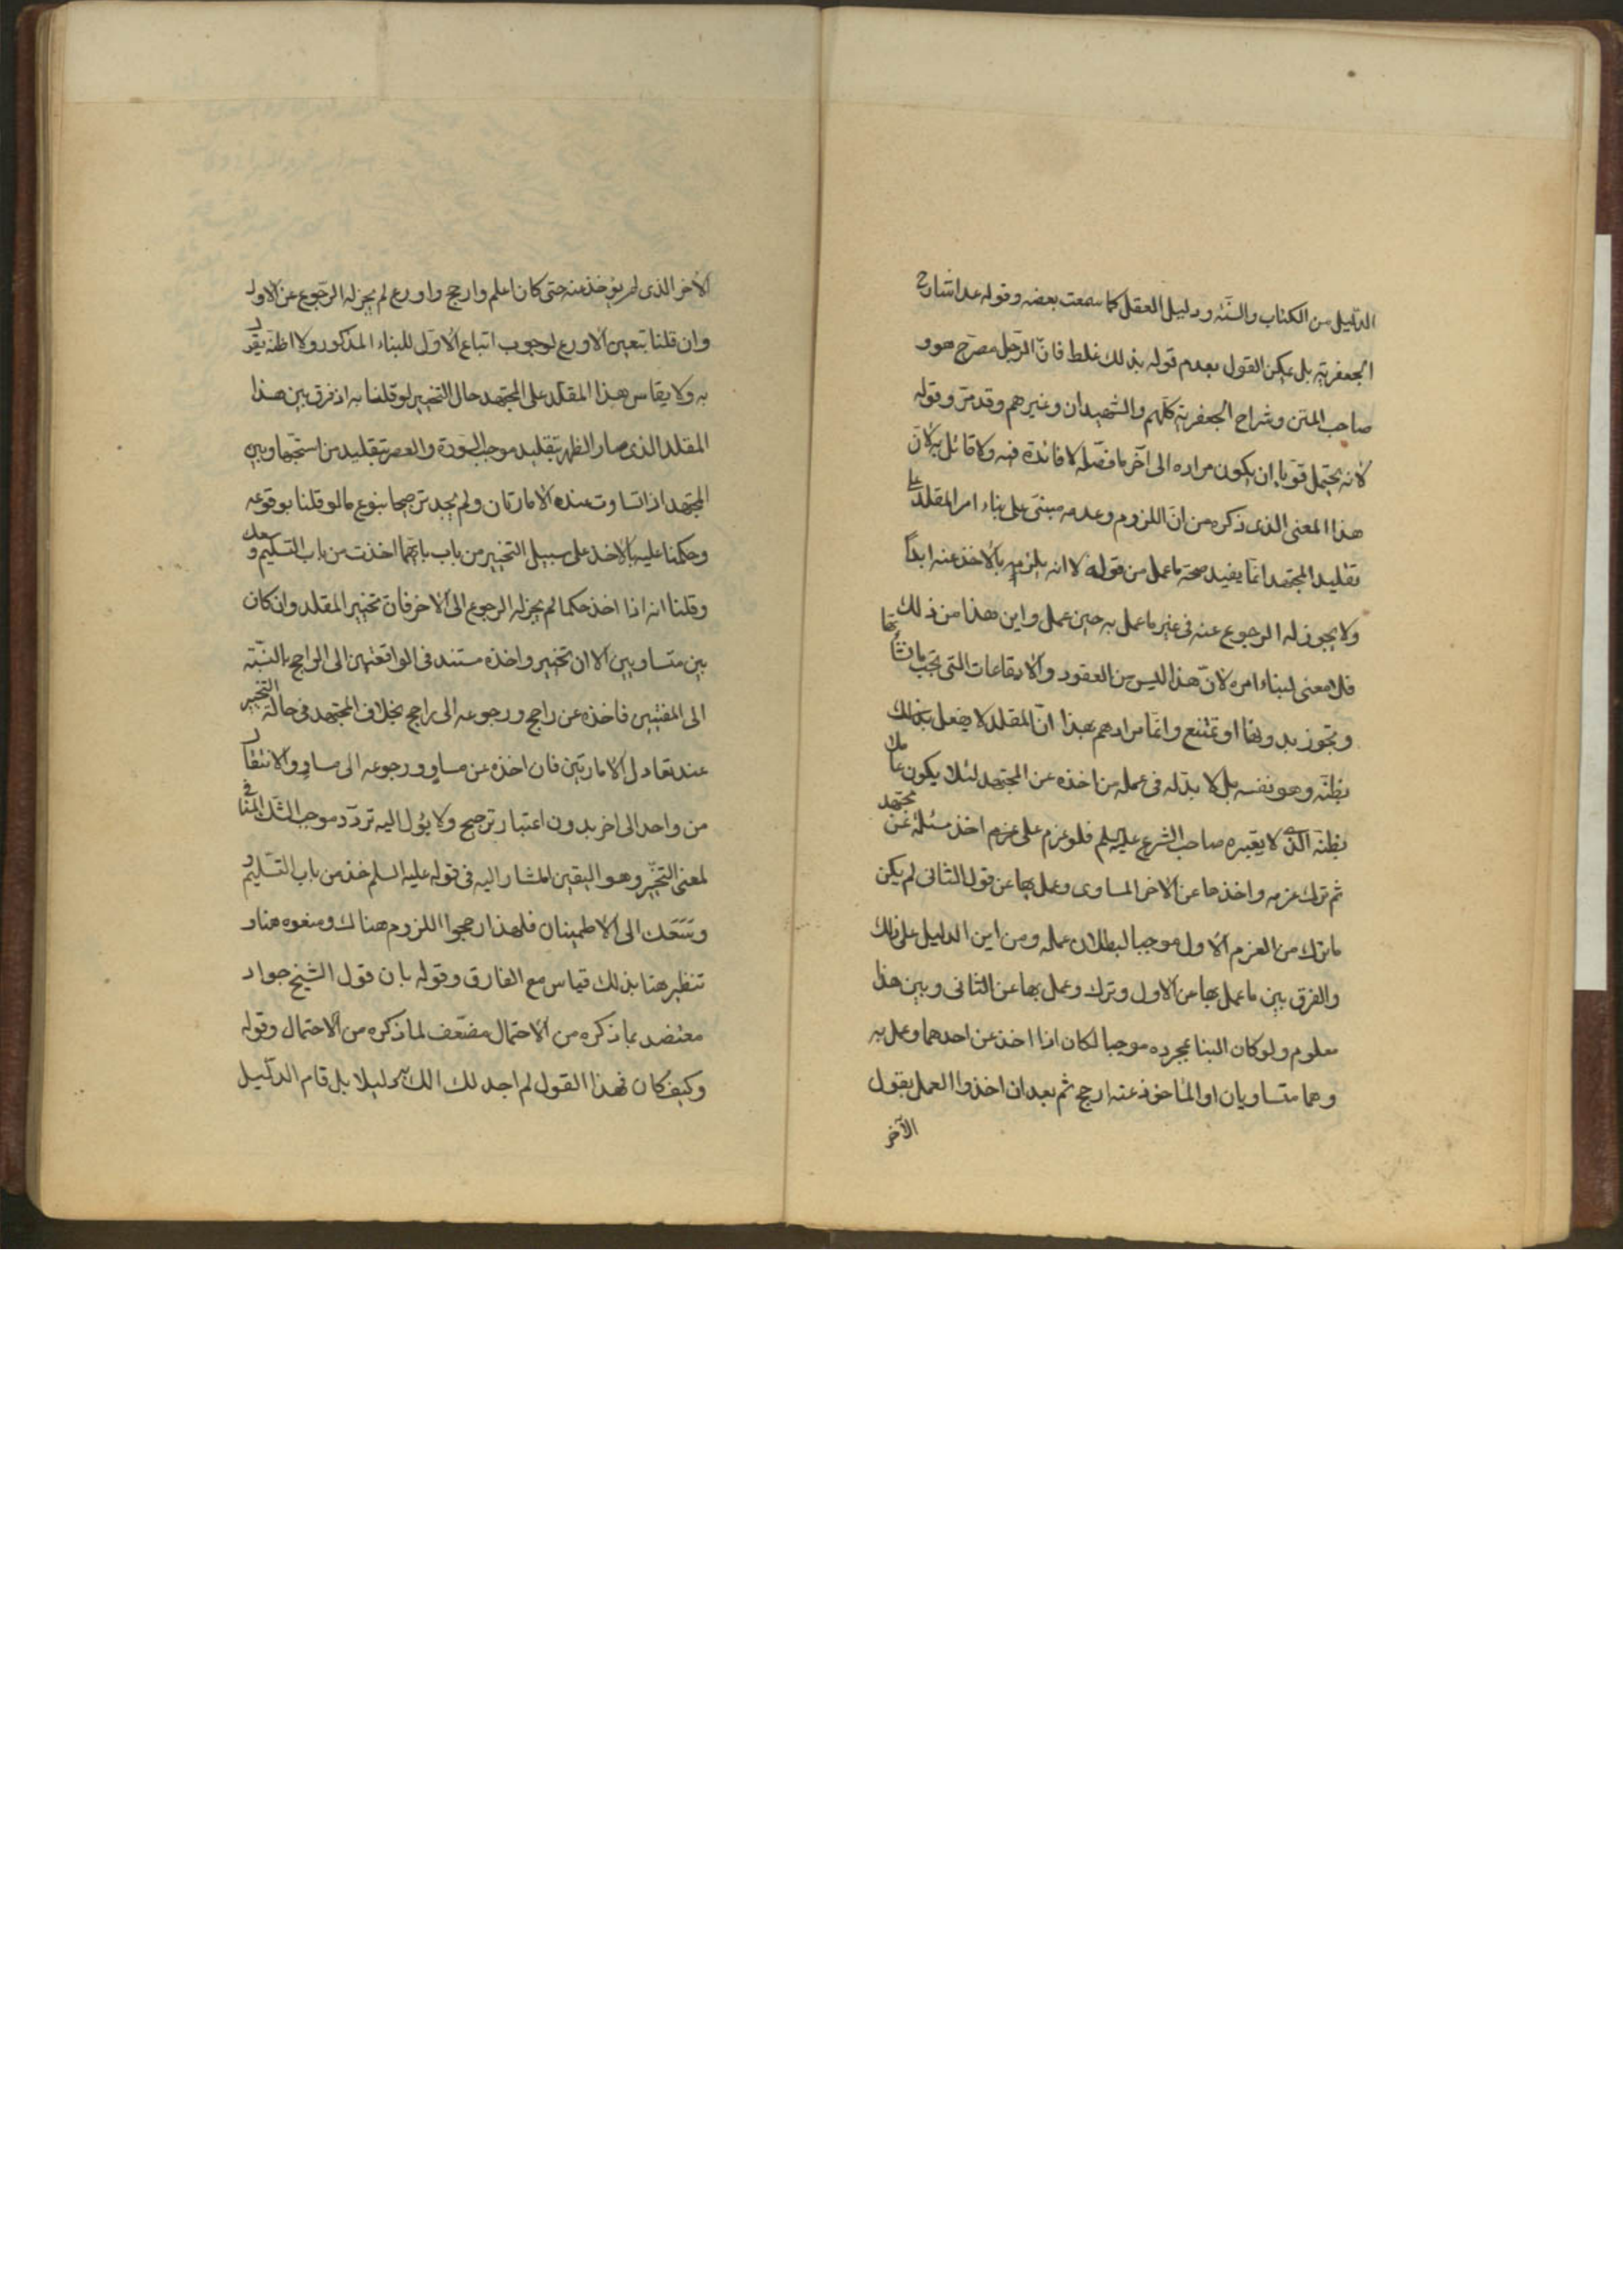 الدليل من الكتاب والسنة ودليل العقل كما سمعت بعضه وقوله عدا شارح
الجعفرية بل يمكن القول بعدم قوله بذلك غلط فان الرجل مصرح هو و
صاحب المتن وشراح الجعفرية كلهم والشهيدان وغيرهم وقد مر وقوله
لانه يحتمل قويا ان يكون مراده الى آخر ما فصله لا فائدة فيه ولا قائل به لان
هذا المعنى الذى ذكره من ان اللزوم وعدمه مبتنى على بناء امر المقلد على
تقليد المجتهد انما يفيد صحة ما عمل من قوله لا انه يلزمه بالاخذ عنه ابدا
ولا يجوز له الرجوع عنه فى غير ما عمل به حين عمل واين هذا من ذلك
فلا معنى لبناء امره لان هذا ليس من العقود والايقاعات التى تجب بانشائها
وتجوز بدونها او تمتنع وانما مرادهم بهذا ان المقلد لا يفعل بذلك
بظنه وهو نفسه بل لا بد له فى عمله من اخذه عن المجتهد لئلا يكون عاملا
بظنه الذى لا يعتبره صاحب الشرع عليه السلم فلو عزم على عزم اخذ مسئلة عن مجتهد
ثم ترك عزمه واخذها عن الاخر المساوى وعمل بها عن قول الثانى لم يكن
ما ترك من العزم الاول موجبا لبطلان عمله ومن اين الدليل على ذلك
والفرق بين ما عمل بها عن الاول وترك وعمل بها عن الثانى وبين هذا
معلوم ولو كان البنا بمجرده موجبا لكان اذا اخذ عن احدهما وعمل به
وهما متساويان او الماخوذ عنه ارجح ثم بعد ان اخذ والعمل بقول
الآخر
الاخر الذى لم يؤخذ عنه حتى كان اعلم وارجح واورع لم يجز له الرجوع عن الاول
وان قلنا بتعين الاورع لوجوب اتباع الاول للبناء المذكور ولا اظنه يقر
به ولا يقاس هذا المقلد على المجتهد حال التخيير لو قلنا به اذ فرق بين هذا
المقلد الذى صار الظهر بتقليد موجب السورة والعصر بتقليد من استحبها وبين
المجتهد اذا تساوت عنده الامارتان ولم يجد ترجيحا بنوع ما لو قلنا بوقوعه
وحكمنا عليه بالاخذ على سبيل التخيير من باب بايهما اخذت من باب التسليم وسعك
وقلنا انه اذا اخذ حكما لم يجز له الرجوع الى الاخر فان تخيير المقلد وان كان
بين متساويين الا ان تخييره واخذه مستند فى الواقعتين الى الراجح بالنسبة
الى المفتيين فاخذه عن راجح ورجوعه الى راجح بخلاف المجتهد فى حالة التخيير
عند تعادل الامارتين فان اخذه عن مساو ورجوعه الى مساو والانتقال
من واحد الى اخر بدون اعتبار ترجيح ولا يؤل اليه تردد موجب الشك المنافى
لمعنى التخير وهو اليقين المشار اليه فى قوله عليه السلم خذ من باب التسليم و
وسعك الى الاطمينان فلهذا رجحوا اللزوم هناك ومنعوه هنا و
تنظير هنا بذلك قياس مع الفارق وقوله بان قول الشيخ جواد
معتضد بما ذكره من الاحتمال مضعف لما ذكره من الاحتمال وقوله
وكيف كان فهذا القول لم اجد لك دليلا بل قام الدليل